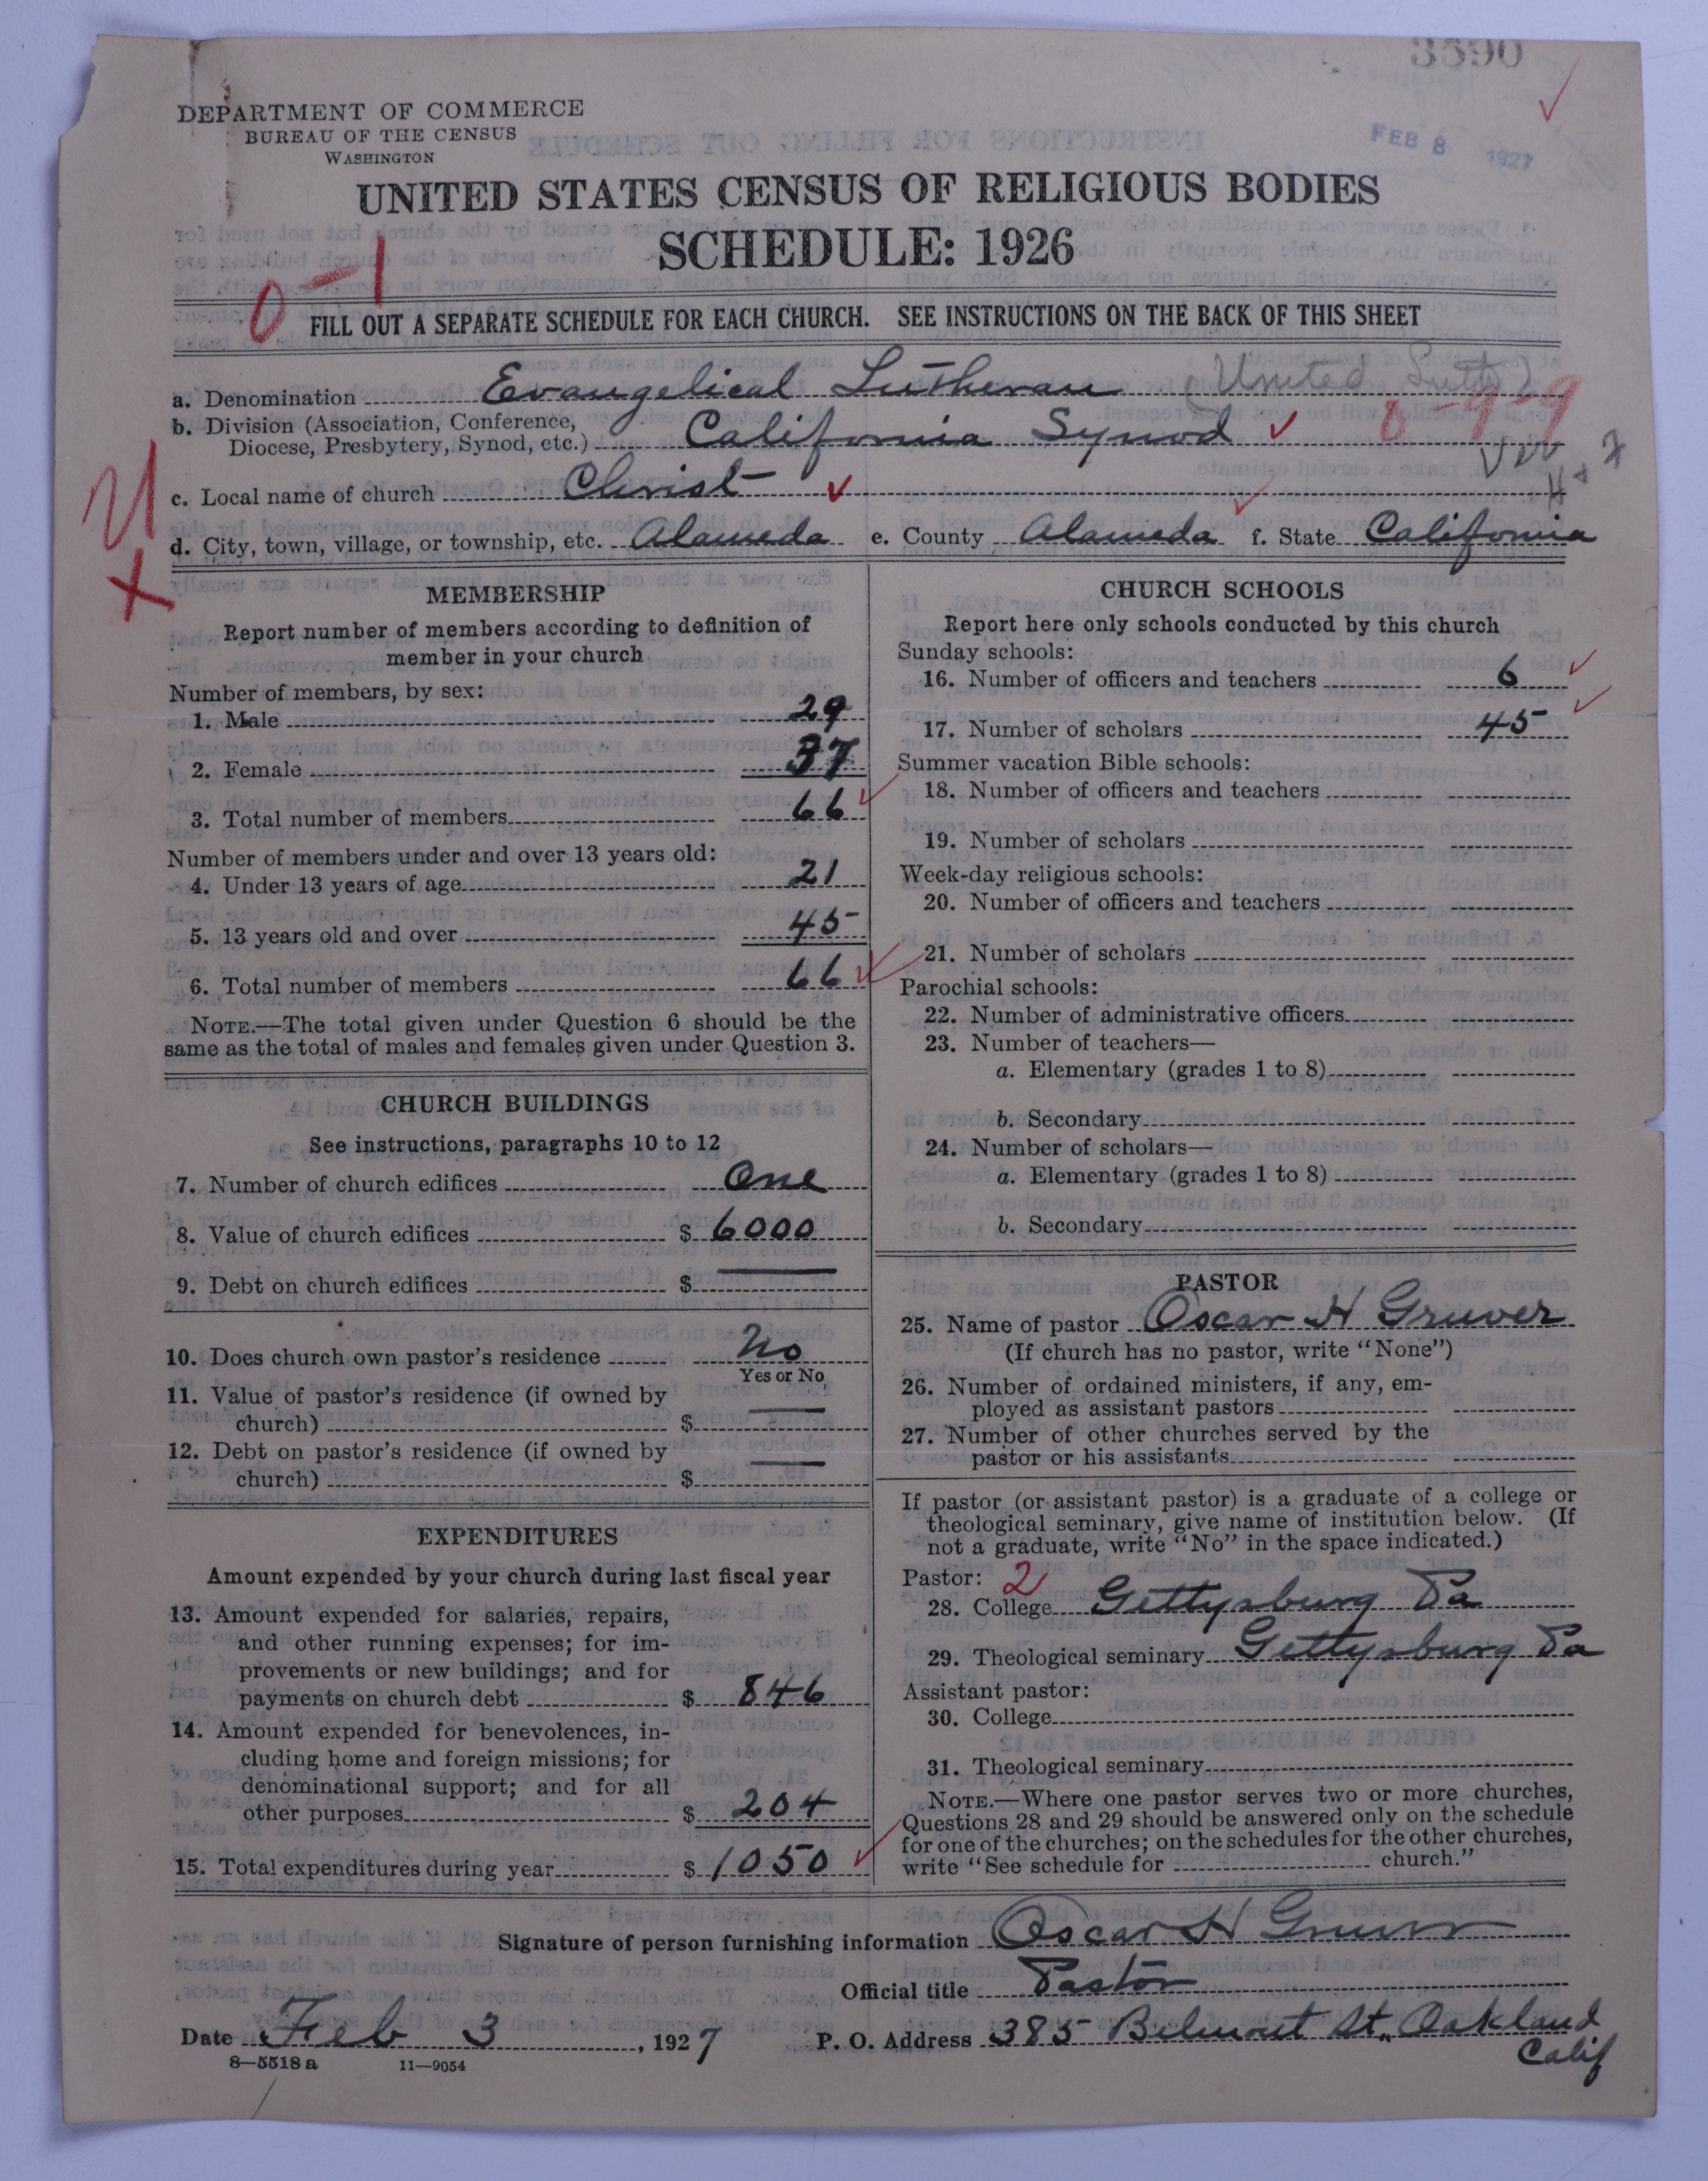 3590
FEB 8 1927
DEPARTMENT OF COMMERCE
BUREAU OF THE CENSUS
WASHINGTON
UNITED STATES CENSUS OF RELIGIOUS BODIES
SCHEDULE: 1926
0-1
FILL OUT A SEPARATE SCHEDULE FOR EACH CHURCH. SEE INSTRUCTIONS ON THE BACK OF THIS SHEET
a. Denomination Evangelical Lutheran (United Luth)
b. Division (Association, Conference,
Diocese, Presbytery, Synod, etc.) California Synod
c. Local name of church Christ
d. City, town, village, or township, etc. Alameda e. County Alameda f. State California
MEMBERSHIP
Report number of members according to definition of
member in your church
Number of members, by sex:
1. Male 29
2. Female 37
3. Total number of members 66
Number of members under and over 13 years old:
4. Under 13 years of age 21
5. 13 years old and over 45
6. Total number of members 66
NOTE.—The total given under Question 6 should be the
same as the total of males and females given under Question 3.
CHURCH BUILDINGS
See instructions, paragraphs 10 to 12
7. Number of church edifices One
8. Value of church edifices $ 6000
9. Debt on church edifices $ —
10. Does church own pastor's residence No
Yes or No
11. Value of pastor's residence (if owned by
church) $ —
12. Debt on pastor's residence (if owned by
church) $ —
EXPENDITURES
Amount expended by your church during last fiscal year
13. Amount expended for salaries, repairs,
and other running expenses; for im-
provements or new buildings; and for
payments on church debt $ 846
14. Amount expended for benevolences, in-
cluding home and foreign missions; for
denominational support; and for all
other purposes $ 204
15. Total expenditures during year $ 1050
CHURCH SCHOOLS
Report here only schools conducted by this church
Sunday schools:
16. Number of officers and teachers 6
17. Number of scholars 45
Summer vacation Bible schools:
18. Number of officers and teachers
19. Number of scholars
Week-day religious schools:
20. Number of officers and teachers
21. Number of scholars
Parochial schools:
22. Number of administrative officers
23. Number of teachers—
a. Elementary (grades 1 to 8)
b. Secondary
24. Number of scholars—
a. Elementary (grades 1 to 8)
b. Secondary
PASTOR
25. Name of pastor Oscar H Gruver
(If church has no pastor, write "None")
26. Number of ordained ministers, if any, em-
ployed as assistant pastors
27. Number of other churches served by the
pastor or his assistants
If pastor (or assistant pastor) is a graduate of a college or
theological seminary, give name of institution below. (If
not a graduate, write "No" in the space indicated.)
Pastor: 2
28. College Gettysburg Pa
29. Theological seminary Gettysburg Pa
Assistant pastor:
30. College
31. Theological seminary
NOTE.—Where one pastor serves two or more churches,
Questions 28 and 29 should be answered only on the schedule
for one of the churches; on the schedules for the other churches,
write "See schedule for church."
Signature of person furnishing information Oscar H Gruver
Official title Pastor
Date Feb 3, 1927 P. O. Address 385 Belmont St. Oakland
Calif
8—5518a 11—9054